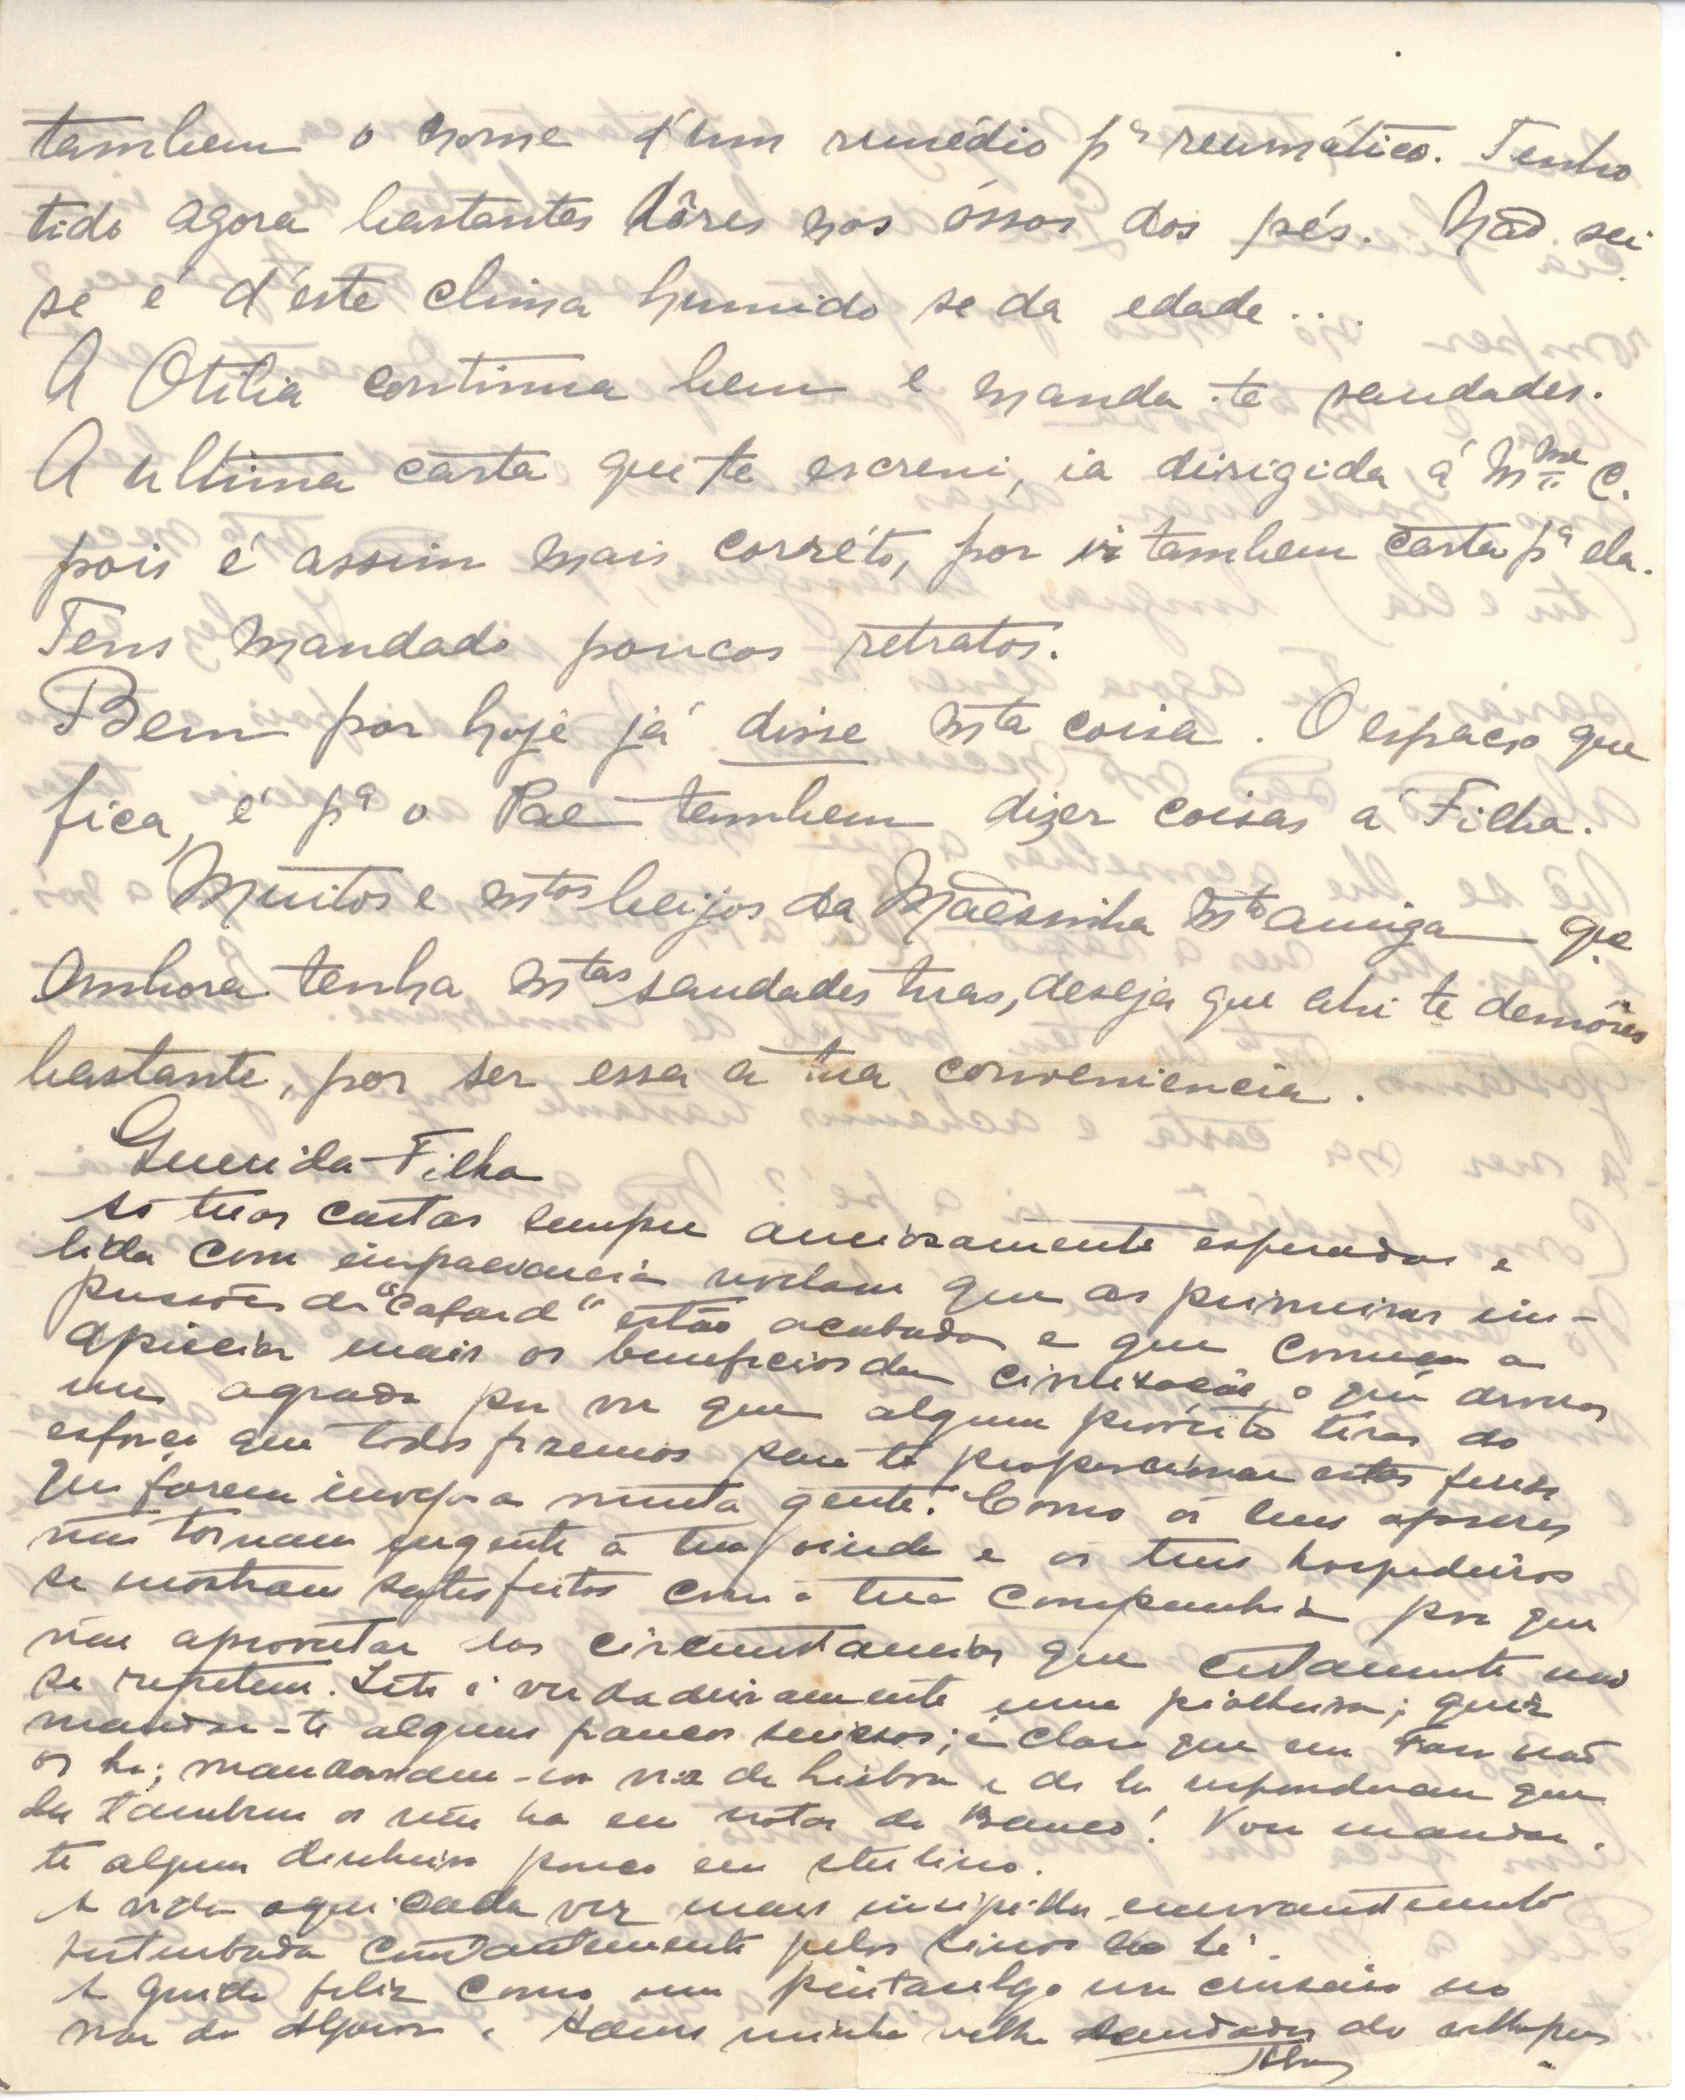 tambem o nome d'um remédio pª reumático. Tenho
tido agora bastantes dôres nos óssos dos pés. Não sei
se é d'este clima humido se da edade...
A Otilia continua bem e manda-te saudades.
A ultima carta que te escrevi, ia dirigida á Mme C.
pois é assim mais corréto, por ir tambem carta pª ela.
Tens mandado poucos retratos.
Bem por hoje já disse mta coisa. O espaço que
fica, é pª o Pae tambem dizer coisas á Filha.
Muitos e mtos beijos da Mãesinha mto amiga que
embora tenha mtas saudades tuas, deseja que ahi te demôres
bastante, por ser essa a tua conveniencia.
Querida Filha
As tuas cartas sempre anciosamente esperadas e
lidas com impaciencia revelam que as primeiras im-
pressões de "Cafard" estão acabadas e que começas a
apreciar mais os beneficios da civilisação, o que
me agrada por ver que algum proveito tiras do
esforço que todos fizemos para te proporcionar estas ferias
que fazem inveja a muita gente. Como os teus
não tornam urgente a tua vinda e os teus hospedeiros
se mostram satisfeitos com a tua companhia por que
não aproveitar as circunstancias que certamente não
se repetem. Isto é verdadeiramente uma piolheira; quiz
mandar-te alguns francos suissos; é claro que em Faro não
os ha; mandaram-me de Lisboa e de la responderam que
la tambem os não ha em notas de Banco! Vou mandar-
te algum dinheiro pouco em
A vida aqui cada vez mais insipida
perturbada constantemente pelos sinos da Sé.
A feliz como um pintasilgo
Adeus minha velha saudades do velho pae